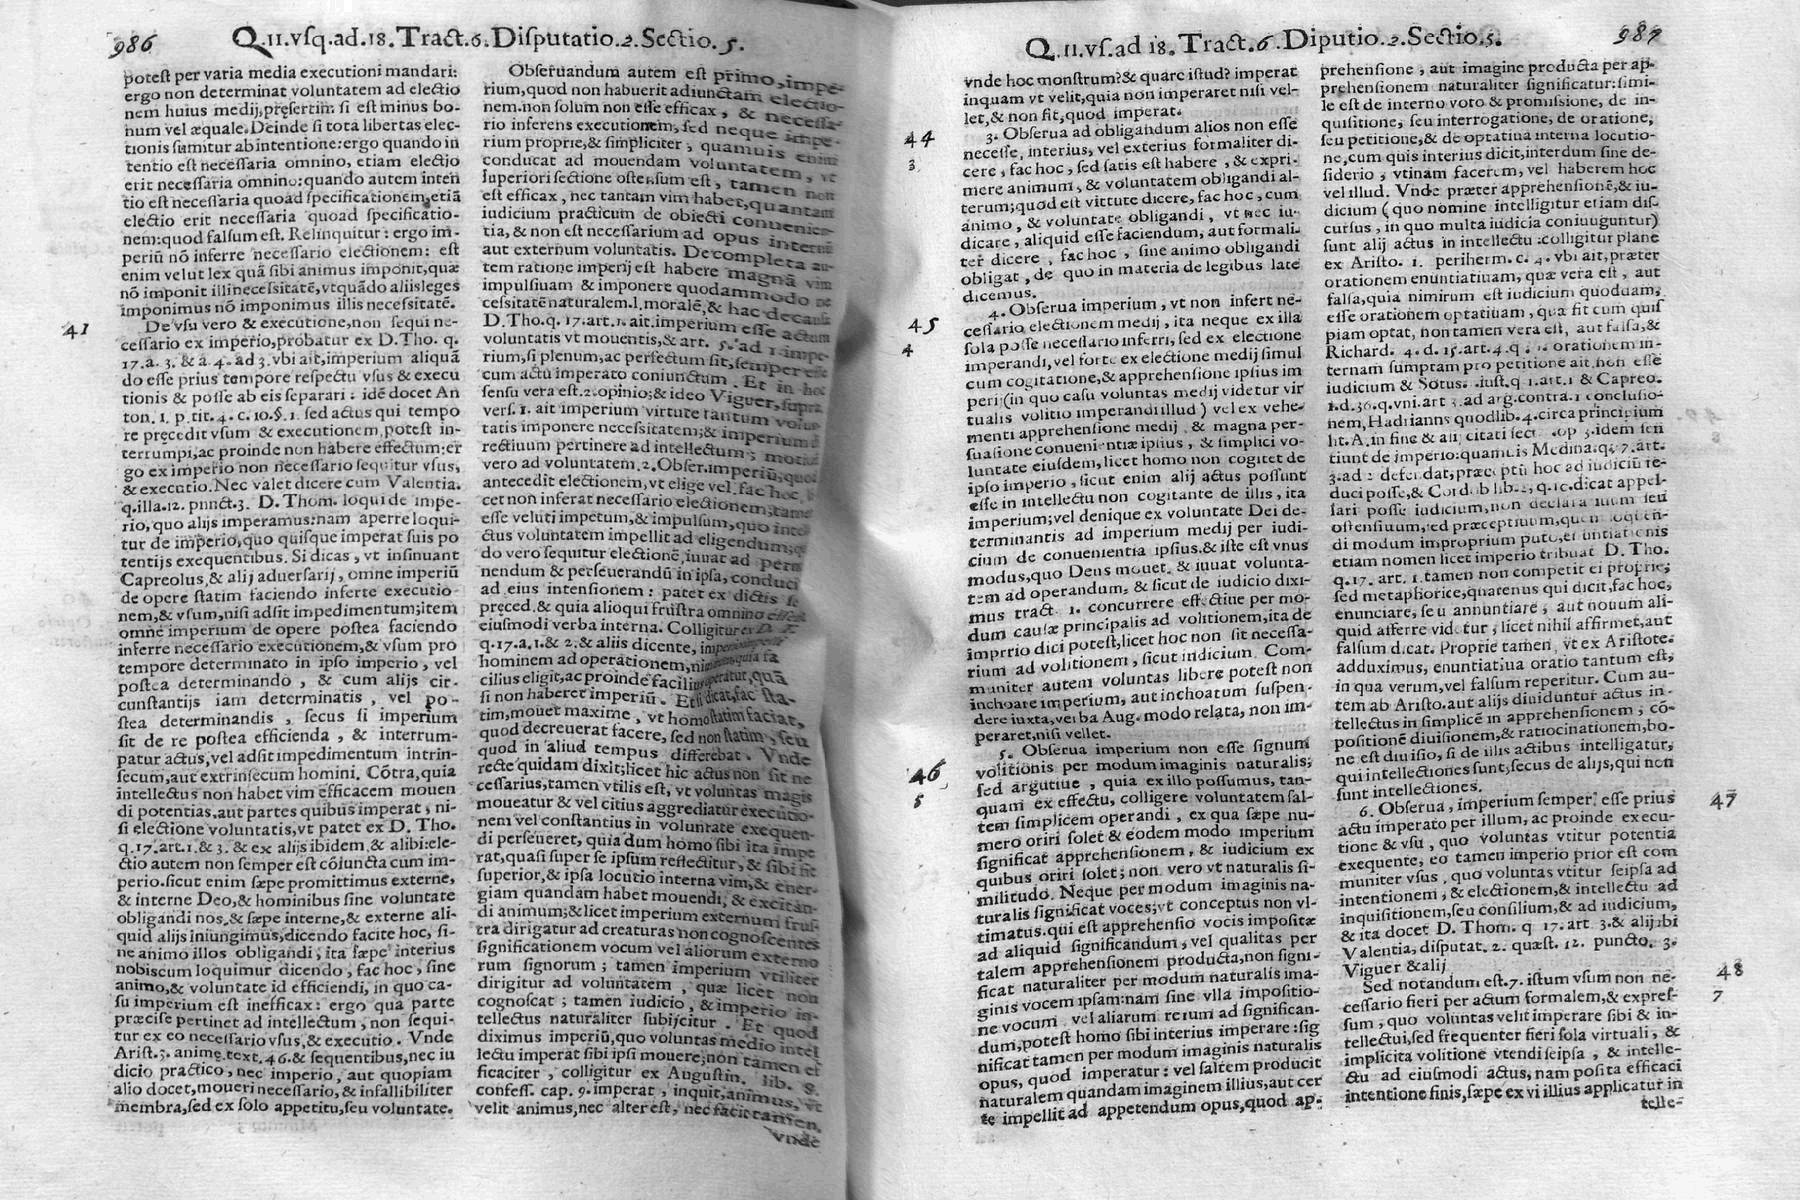 986
Q.11.vſq.ad.18.Tract.6.Diſputatio.2.Sectio.5.
poteſt per varia media executioni mandari:
ergo non determinat voluntatem ad electio
nem huius medij,pręſertim ſi eſt minus bo-
num vel æquale.Deinde ſi tota libertas elec-
tionis ſumitur ab intentione:ergo quando in
tentio eſt neceſſaria omnino, etiam electio
erit neceſſaria omnino:quando autem inten
tio eſt neceſſaria quoad ſpecificationem,etiā
electio erit neceſſaria quoad ſpecificatio-
nem:quod falſum eſt. Relinquitur: ergo im-
periū nō inferre neceſſario electionem: eſt
enim velut lex quā ſibi animus imponit,quæ
nō imponit illi neceſsitatē,vt quādo alijs leges
imponimus nō imponimus illis neceſsitatē.
41
De vſu vero & executione,non ſequi ne-
ceſſario ex imperio,probatur ex D.Tho. q.
17.a. 3. & a 4. ad 3. vbi ait,imperium aliquā
do eſſe prius tempore reſpectu vſus & execu
tionis & poſſe ab eis ſeparari : idē docet An
ton. 1. p. tit. 4. c. 10.§. 1. ſed actus qui tempo
re pręcedit vſum & executionem,poteſt in-
terrumpi,ac proinde non habere effectum:er
go ex imperio non neceſſario ſequitur vſus,
& executio. Nec valet dicere cum Valentia.
q.illa.12. punct.3. D. Thom. loqui de impe-
rio, quo alijs imperamus:nam aperre loqui-
tur de imperio,quo quiſque imperat ſuis po
tentijs exequentibus. Si dicas, vt inſinuant
Capreolus,& alij aduerſarij, omne imperiū
de opere ſtatim faciendo inferte executio-
nem,& vſum,niſi adſit impedimentum;item
omne imperium de opere poſtea faciendo
inferre neceſſario executionem,& vſum pro
tempore determinato in ipſo imperio, vel
poſtea determinando , & cum alijs cir-
cunſtantijs iam determinatis , vel po-
ſtea determinandis , ſecus ſi imperium
ſit de re poſtea efficienda , & interrum-
patur actus,vel adſit impedimentum intrin-
ſecum,aut extrinſecum homini. Cōtra,quia
intellectus non habet vim efficacem mouen
di potentias.aut partes quibus imperat, ni-
ſi electione voluntatis,vt patet ex D. Tho.
q.17.art.1.& 3. & ex alijs ibidem & alibi:ele-
ctio autem non ſemper eſt cōiuncta cum im-
perio.ſicut enim ſæpe promittimus externe,
& interne Deo,& hominibus ſine voluntate
obligandi nos,& ſæpe interne,& externe ali-
quid alijs iniungimus,dicendo facite hoc, ſi-
ne animo illos obligandi; ita ſæpe interius
nobiscum loquimur dicendo, fac hoc, ſine
animo,& voluntate id efficiendi, in quo ca-
ſu imperium eſt inefficax: ergo qua parte
præciſe pertinet ad intellectum, non ſequi-
tur ex eo neceſſario vſus,& executio. Vnde
Ariſt.3. animę.text.46.& ſequentibus,nec iu
dicio practico, nec imperio, aut quopiam
alio docet,moueri neceſſario,& infallibiliter
membra,ſed ex ſolo appetitu,ſeu voluntate.
Obſeruandum autem eſt primo,impe-
rium,quod non habuerit adiunctam electio-
nem.non ſolum non eſſe efficax, & neceſſa-
rio inferens executionem,ſed neque impe-
rium proprie,& ſimpliciter; quamuis enim
conducat ad mouendam voluntatem, vt
ſuperiori ſectione oſtenſum eſt, tamen non
eſt efficax, nec tantam vim habet,quantam
iudicium practicum de obiecti conuenien-
tia,& non eſt neceſſarium ad opus internū
aut externum voluntatis. De completa au-
tem ratione imperij eſt habere magnā vim
impulſiuam & imponere quodammodo ne
ceſsitatē naturalem.l.moralē,& hac de cauſa
D.Tho.q. 17.art.1.ait.imperium eſſe actum
voluntatis vt mouentis,& art. 5. ad 1 impe-
rium,ſi plenum,ac perfectum ſit,ſemper eſſe
cum actu imperato coniunctum . Et in hoc
ſenſu vera eſt.2.opinio;& ideo Viguer,ſupra
verſ. 1. ait imperium virtute tantum volun
tatis imponere neceſsitatem;& imperium di
rectiuum pertinere ad intellectum; motiuum
vero ad voluntatem.2.Obſer.imperiū,quod
antecedit electionem,vt elige vel fac hoc,
cet non inferat neceſſario electionem;tamē
eſſe veluti impetum,& impulſum,quo intel
ctus voluntatem impellit ad eligendum;
do vero ſequitur electionē,iuuat ad perma
nendum & perſeuerandū in ipſa, conduci
ad eius intenſionem : patet ex dictis
pręced.& quia alioqui fruſtra omnino
eiuſmodi verba interna. Colligitur ex D.
q.17.a.1.& 2.& aliis dicente,
hominem ad operationem, quia fa
cilius eligit,ac proinde facilius operatur,quā
ſi non haberet imperiū. Et ſi dicat,fac ſta-
tim,mouet maxime , vt homo ſtatim faciat,
quod decreuerat facere, ſed non ſtatim, ſeu
quod in aliud tempus differebat. Vnde
recte quidam dixit;licet hic actus non ſit ne
ceſſarius,tamen vtilis eſt, vt voluntas magis
moueatur & vel citius aggrediatur executio-
nem vel conſtantius in voluntate exequen-
di perſeueret, quia dum homo ſibi ita impe
rat,quaſi ſuper ſe ipſum reflectitur,& ſibi fit
ſuperior,& ipſa locutio interna vim,& ener-
giam quandam habet mouendi, & excitan-
di animum;& licet imperium externum fruſ-
tra dirigatur ad creaturas non cognoſcentes
ſignificationem vocum vel aliorum externo
rum ſignorum ; tamen imperium vtiliter
dirigitur ad voluntatem , quæ licet non
cognoſcat ; tamen iudicio , & imperio in-
tellectus naturaliter ſubijcitur . Et quod
diximus imperiū,quo voluntas medio intel
lectu imperat ſibi ipſi mouere;non tamen ef
ficaciter, colligitur ex Auguſtin. lib. 8.
confeſſ. cap. 9. imperat, inquit,animus, vt
velit animus,nec alter eſt, nec facit tamen.
vnde
Q.11.vſ.ad 18.Tract.6.Diputio.2.Sectio.5.
987
vnde hoc monſtrum?& quare iſtud? imperat
inquam vt velit,quia non imperaret niſi vel-
let,& non fit,quod imperat.
44
3
3. Obſerua ad obligandum alios non eſſe
neceſſe, interius, vel exterius formaliter di-
cere, fac hoc, ſed ſatis eſt habere , & expri-
mere animum, & voluntatem obligandi al-
terum;quod eſt virtute dicere, fac hoc, cum
animo, & voluntate obligandi , vt nec iu-
dicare, aliquid eſſe faciendum, aut formali-
ter dicere , fac hoc , ſine animo obligandi
obligat, de quo in materia de legibus late
dicemus.
45
4
4. Obſerua imperium, vt non infert ne-
ceſſario electionem medij, ita neque ex illa
ſola poſſe neceſſario inferri, ſed ex electione
imperandi, vel forte ex electione medij ſimul
cum cogitatione,& apprehenſione ipſius im
perij(in quo caſu voluntas medij videtur vir
tualis volitio imperandi illud ) vel ex vehe-
menti apprehenſione medij & magna per-
ſuaſione conuenientiæ ipſius, & ſimplici vo-
luntate eiuſdem, licet homo non cogitet de
ipſo imperio , ſicut enim alij actus poſſunt
eſſe in intellectu non cogitante de illis, ita
imperium;vel denique ex voluntate Dei de-
terminantis ad imperium medij per iudi-
cium de conuenientia ipſius.& iſte eſt vnus
modus,quo Deus mouet, & iuuat volunta-
tem ad operandum, & ſicut de iudicio dixi-
mus tract. 1. concurrere effectiue per mo-
dum cauſæ principalis ad volitionem,ita de
imperio dici poteſt,licet hoc non ſit neceſſa-
rium ad volitionem, ſicut iudicium. Com-
muniter autem voluntas libere poteſt non
inchoare imperium, aut inchoatum ſuſpen-
dere iuxta,verba Aug. modo relata, non im-
peraret,niſi vellet.
46
5
5. Obſerua imperium non eſſe ſignum
volitionis per modum imaginis naturalis;
ſed argutiue , quia ex illo poſſumus, tan-
quam ex effectu, colligere voluntatem ſal-
tem ſimplicem operandi, ex qua ſæpe nu-
mero oriri ſolet & eodem modo imperium
ſignificat apprehenſionem, & iudicium ex
quibus oriri ſolet; non vero vt naturalis ſi-
militudo. Neque per modum imaginis na-
turalis ſignificat voces;vt conceptus non vl-
timatus.qui eſt apprehenſio vocis impoſitæ
ad aliquid ſignificandum, vel qualitas per
talem apprehenſionem producta,non ſigni-
ficat naturaliter per modum naturalis ima-
ginis vocem ipſam:nam ſine vlla impoſitio-
ne vocum vel aliarum rerum ad ſignifican-
dum,poteſt homo ſibi interius imperare :ſig
nificat tamen per modum imaginis naturalis
opus, quod imperatur: vel ſaltem producit
naturalem quandam imaginem illius,aut cer
te impellit ad appetendum opus,quod ap-
prehenſione, aut imagine producta per ap-
prehenſionem naturaliter ſignificatur:ſimi-
le eſt de interno voto & promiſsione, de in-
quiſitione, ſeu interrogatione, de oratione,
ſeu petitione,& de optatiua interna locutio-
ne,cum quis interius dicit,interdum ſine de-
ſiderio, vtinam facerem, vel haberem hoc
vel illud. Vnde præter apprehenſionē,& iu-
dicium ( quo nomine intelligitur etiam diſ-
curſus, in quo multa iudicia coniunguntur)
ſunt alij actus in intellectu :colligitur plane
ex Ariſto. 1. periherm. c. 4. vbi ait,præter
orationem enuntiatiuam, quæ vera eſt, aut
falſa,quia nimirum eſt iudicium quoddam,
eſſe orationem optatiuam, qua fit cum quiſ
piam optat, non tamen vera eſt, aut falſa,&
Richard. 4. d. 15.art.4.q. orationem in-
ternam ſumptam pro petitione ait non eſſe
iudicium & Sotus. .iuſt.q 1.art.1 & Capreo.
1.d.36.q.vni.art 3.ad arg.contra.1 concluſio-
nem, Hadrianns quodlib.4.circa principium
lit.A.in fine & alij citati ſect. .op 3.idem ſen
tiunt de imperio:quamuis Medina.q. 7.art.
3.ad 2 defendat,præceptū hoc ad iudiciū re-
duci poſſe,& Cordub lib. ,q.10.dicat appel-
lari poſſe iudicium,non declaratiuum ſeu
oſtenſiuum,ſed præceptiuum,quem loquen-
di modum improprium puto,et untiationis
etiam nomen licet imperio tribuat D. Tho.
q.17. art. 1.tamen non competit ei proprie;
ſed metaphorice,quatenus qui dicit,fac hoc,
enunciare, ſeu annuntiare, aut nouum ali-
quid afferre videtur, licet nihil affirmet,aut
falſum dicat. Proprie tamen, vt ex Ariſtote.
adduximus, enuntiatiua oratio tantum eſt,
in qua verum,vel falſum reperitur. Cum au-
tem ab Ariſto.aut alijs diuiduntur actus in-
tellectus in ſimplicē in apprehenſionem, cō-
poſitionē diuiſionem,& ratiocinationem,bo-
ne eſt diuiſio, ſi de illis actibus intelligatur,
qui intellectiones ſunt;ſecus de alijs,qui non
ſunt intellectiones.
47
6. Obſerua, imperium ſemper eſſe prius
actu imperato per illum, ac proinde execu-
tione & vſu , quo voluntas vtitur potentia
exequente, eo tamen imperio prior eſt com
muniter vſus , quo voluntas vtitur ſeipſa ad
intentionem, & electionem,& intellectu ad
inquiſitionem,ſeu conſilium,& ad iudicium,
& ita docet D. Thom. q 17. art 3.& alij:ibi
Valentia, diſputat. 2. quæſt. 12. puncto. 3.
Viguer & alij
48
7
Sed notandum eſt.7. iſtum vſum non ne-
ceſſario fieri per actum formalem,& expreſ-
ſum, quo voluntas velit imperare ſibi & in-
tellectui,ſed frequenter fieri ſola virtuali, &
implicita volitione vtendi ſeipſa , & intelle-
ctu ad eiuſmodi actus, nam poſita efficaci
intentione finis,ſæpe ex vi illius applicatur in
telle-